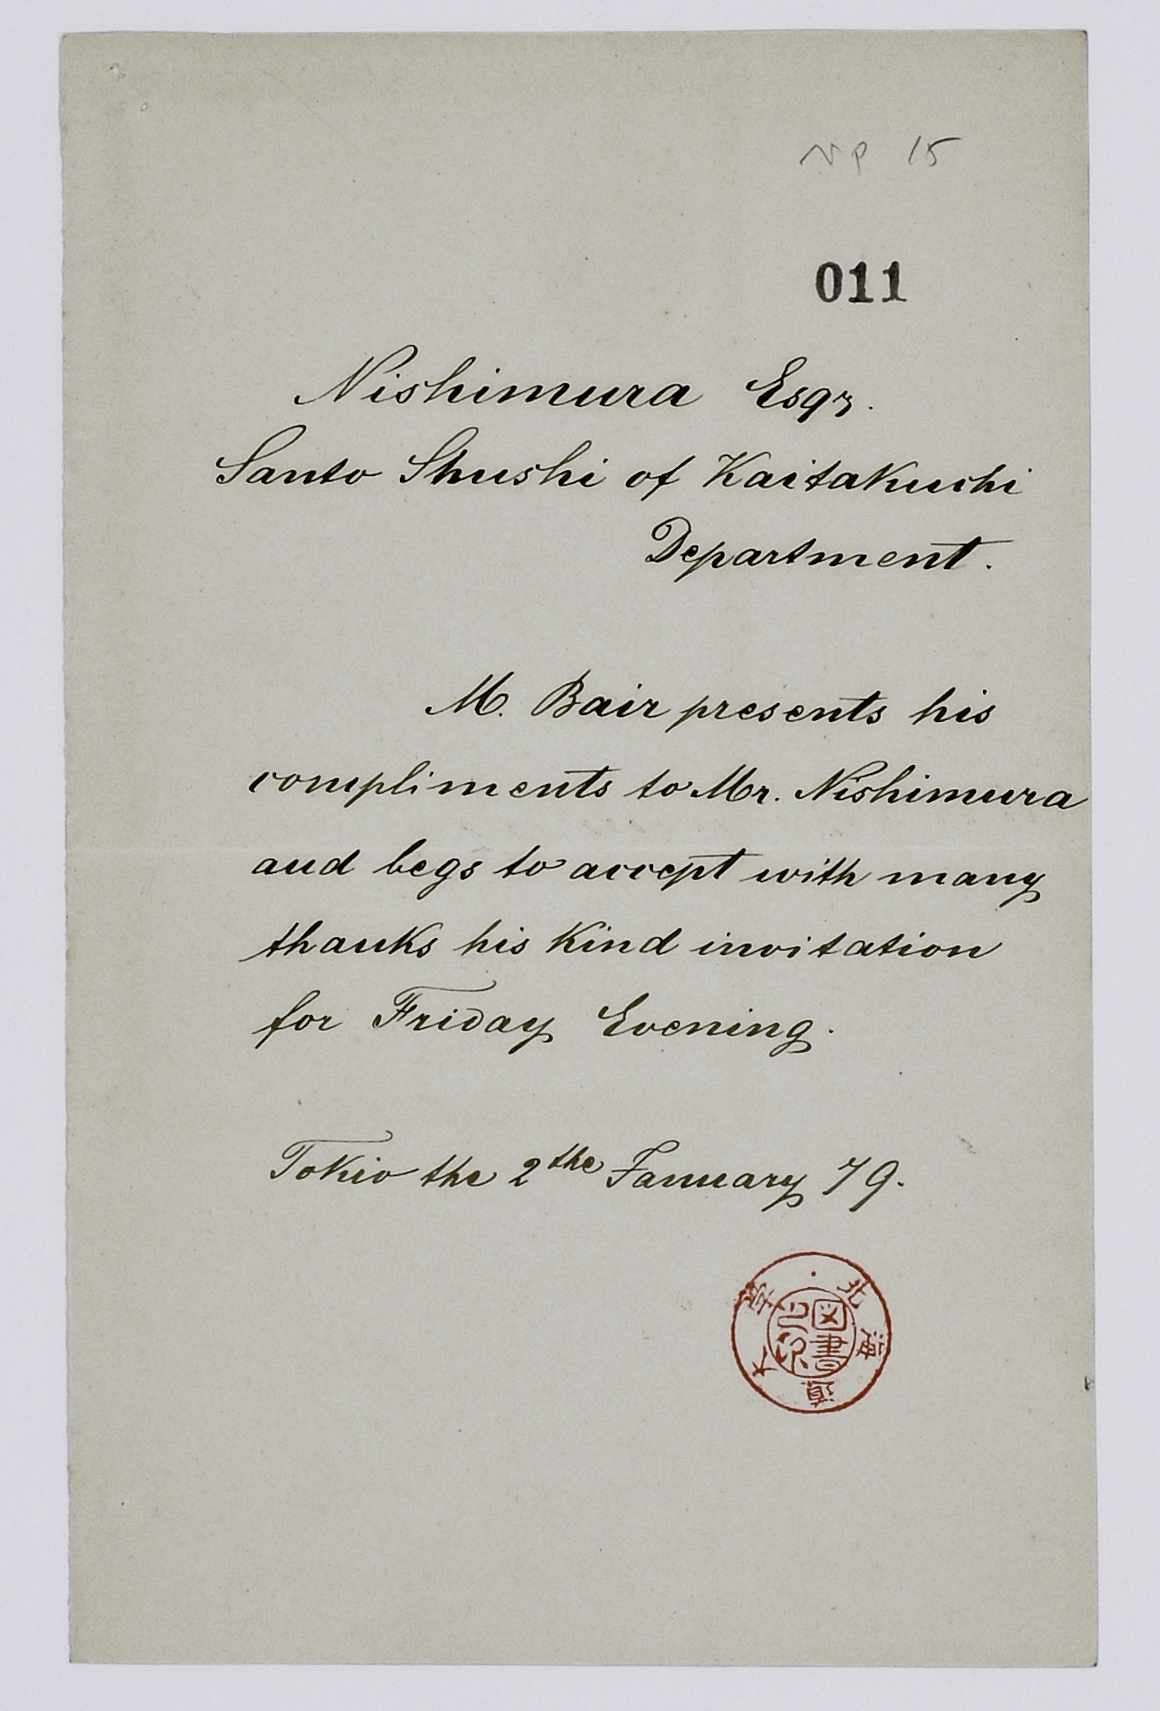 NP 15
011
Nishimura Esqr.
Santo Shushi of Kaitakuchi
Department.
M. Bair presents his
compliments to Mr. Nishimura
and begs to accept with many
thanks his Kind invitation
for Friday Evening.
Tokio the 2the January 79.
北海道大学
図書